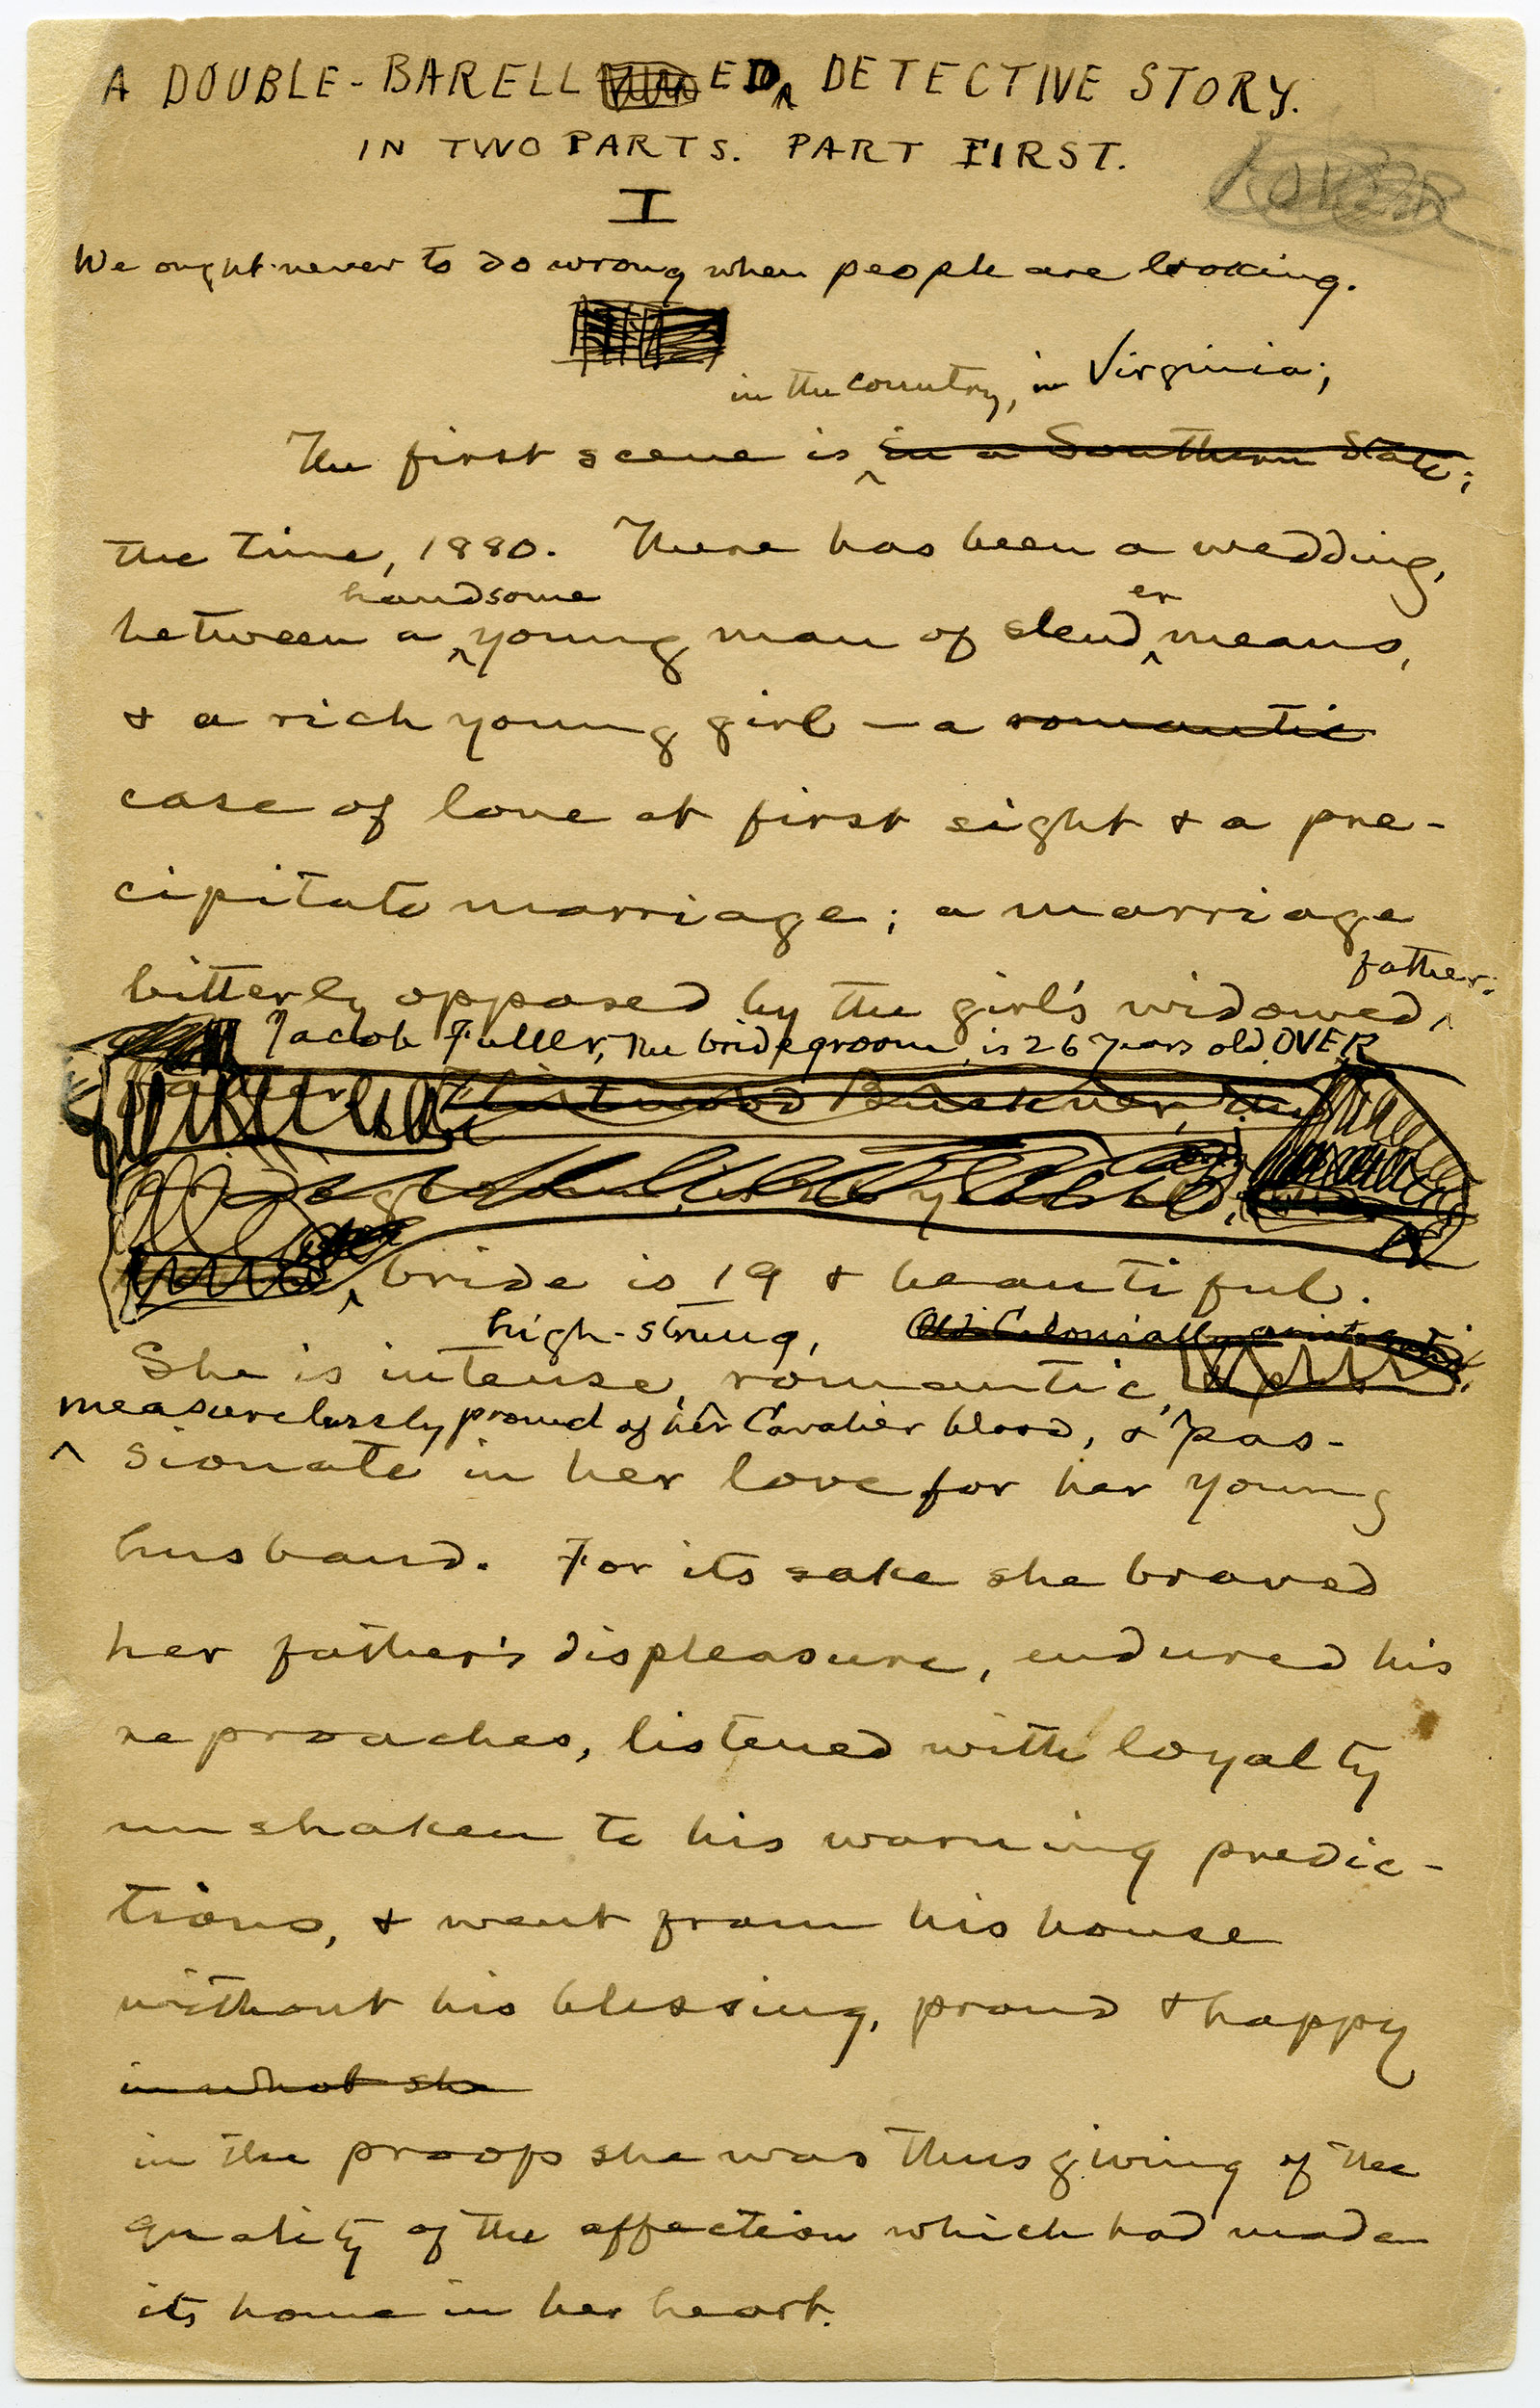 A DOUBLE-BARELLED DETECTIVE STORY.
IN TWO PARTS. PART FIRST.
OVER
I
We ought never to do wrong when people are looking.
in the country, in Virginia;
The first scene is in a Southern State;
the time, 1880. There has been a wedding,
handsome er
between a young man of slend means,
& a rich young girl — a romantic
case of love at first sight & a pre-
cipitate marriage; a marriage
father.
bitterly opposed by the girl's widowed
Jacob Fuller, the bridegroom, is 26 years old OVER
bride is 19 & beautiful.
high-strung,
She is intense, romantic,
measurelessly proud of her Cavalier blood, & pas-
sionate in her love for her young
husband. For its sake she braved
her father's displeasure, endured his
reproaches, listened with loyalty
unshaken to his warning predic-
tions, & went from his house
without his blessing, proud & happy
in what she
in the proofs she was thus giving of the
quality of the affection which had made
its home in her heart.